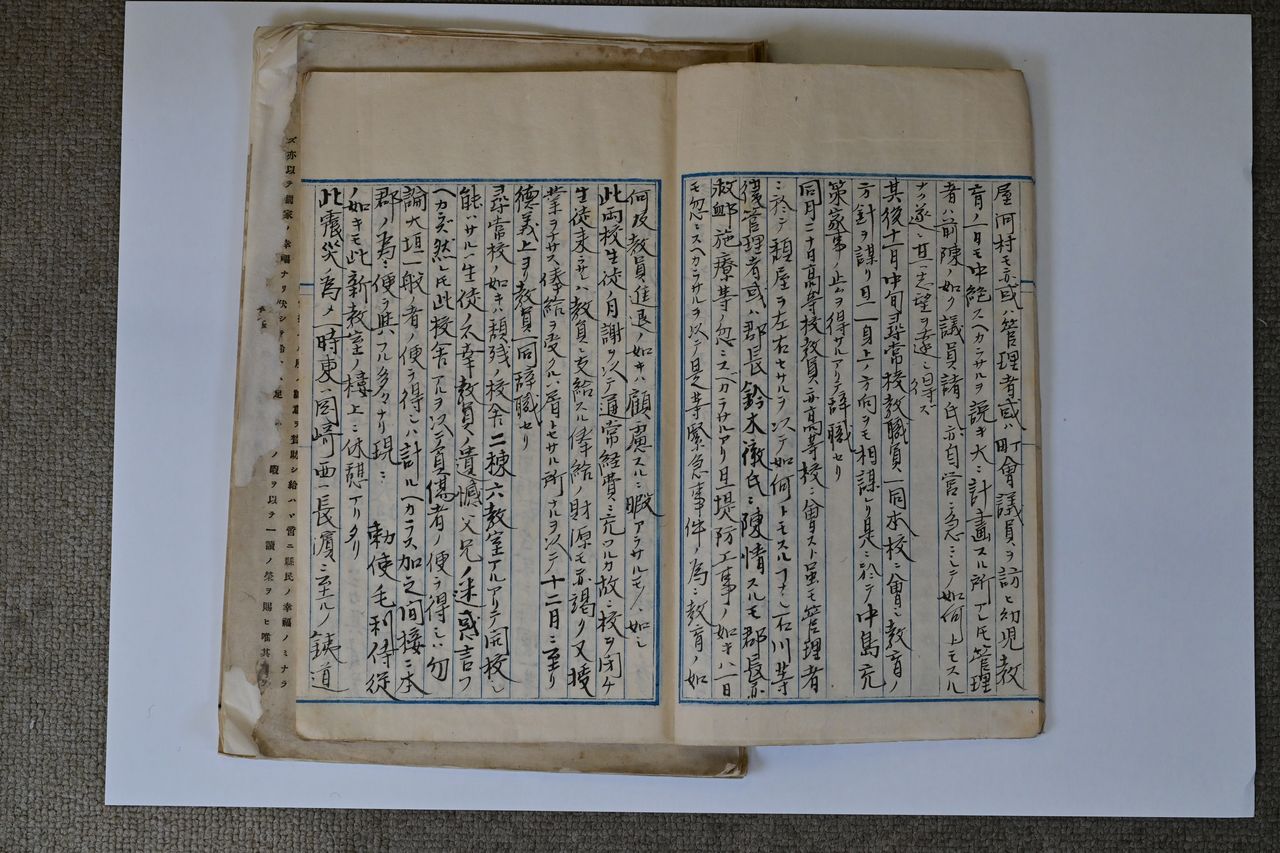 屋河村モ亦或ハ管理者或ハ町會議員ヲ訪ヒ幼児教
育ノ一日モ中絶スヘカラサルヲ説キ大ニ計畫スル所アレ圧管理
者ハ前陳ノ如ク議員諸氏亦自営ニ急ニシテ如何トモスル
ナク遂ニ其志望ヲ達シ得ス
其後十一月中旬尋常校教職員一同本校ニ會シ教育ノ
方針ヲ謀リ且一身上ノ方向ヲモ相謀レリ是ニ於テ中島元
策家事ノ止ヲ得サルアリ辞職セリ
同月二十日高等校教員亦高等校ニ會スト虽モ管理者
ニ於テ頽屋ヲ左右セサルヲ以テ如何トモスル了ナシ石川等
後管理者或ハ郡長鈴木徹氏ニ陳情スルモ郡長亦
救郷施療等忽ニスベカラサルアリ且堤防工事ノ如キハ一日
モ忽ニスヘカラサルヲ以テ是等緊急事件ノ為ニ教育ノ如
何及教員進退ノ如キハ顧慮スルニ暇アラサルモノヽ如シ
此両校生徒月謝ヲ以テ通常経費ニ充ツルカ故ニ校ヲ閉ケ
生徒来ラサレハ教員ニ支給スル俸給ノ財源モ亦竭ク又授
業ヲナサス俸給ヲ受クルハ屑トセサル所ナルヲ以テ十二月ニ至リ
徳義上ヨリ教員一同辞職セリ
尋常校ノ如キハ頽残ノ校舎二棟六教室アルアリテ開校シ
能ハサルハ生徒ノ不幸教員ノ遺憾父兄ノ迷惑言フ
ヘカラズ然レ圧此校舎アルヲ以テ負傷者ノ便ヲ得シハ勿
論大垣一般ノ者ノ便ヲ得シハ計ルヘカラス加之間接ニ本
郡ノ為ニ便ヲ與ヘタル多々ナリ現ニ 勅使毛利侍従
ノ如キモ此新教室ノ樓上ニ休憩アリタリ
此震災ノ為メ一時東ハ岡崎西ハ長濱ニ至ルノ鉄道
ズ亦以テ國家ノ幸福ナリ
給ハヾ啻ニ縣民ノ幸福ノミナラ
ノ暇ヲ以テ一讀ノ榮ヲ賜ヒ